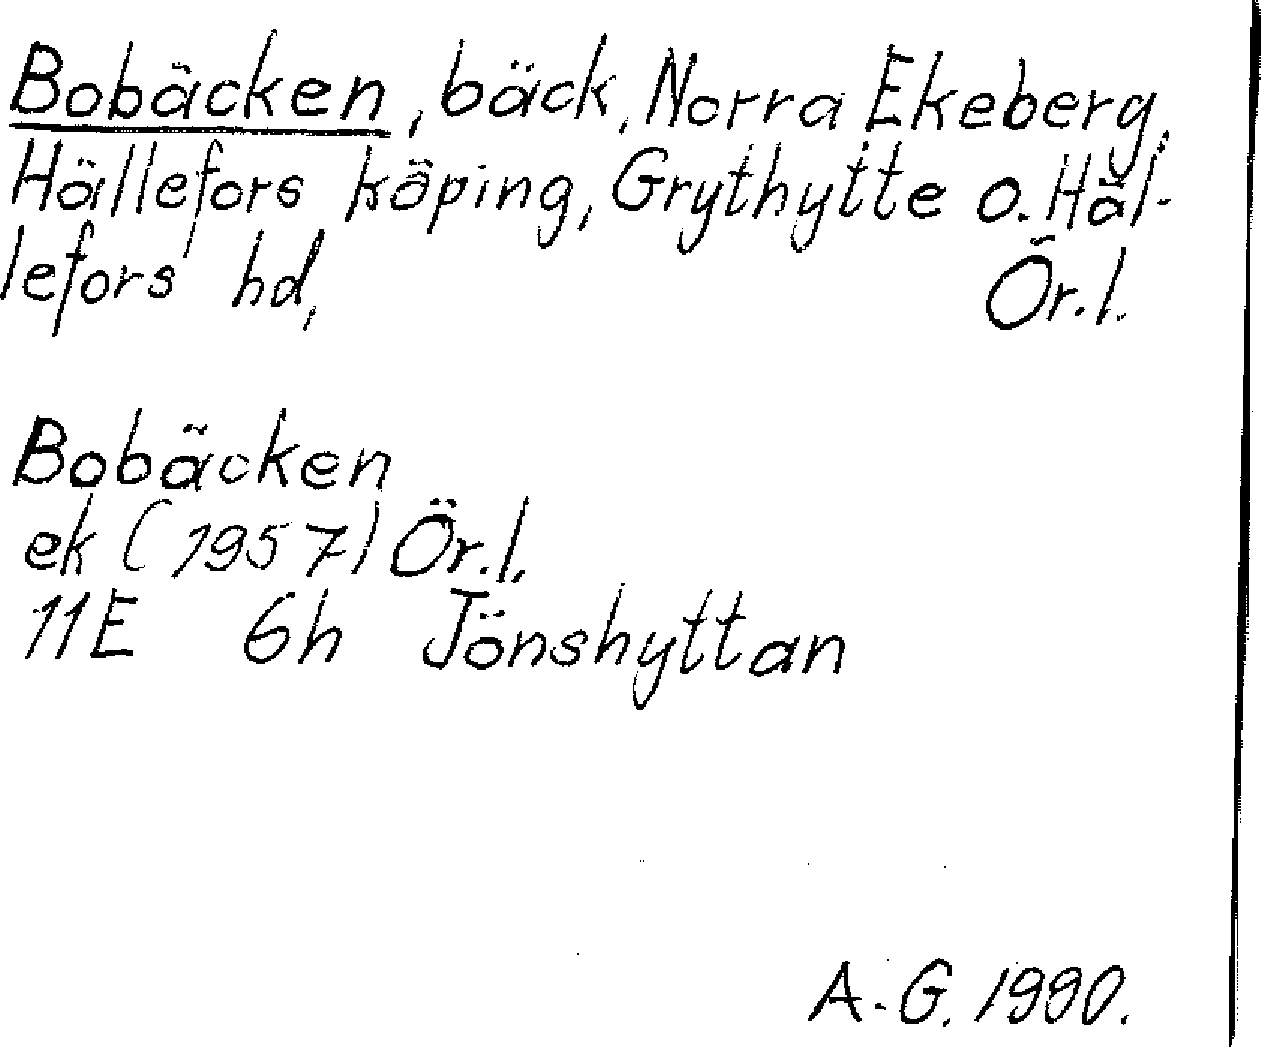 Bobäcken, bäck, Norra Ekeberg,
Hällefors köping, Grythytte o. Häl-
lefors hd, Ör.l.
Bobäcken
ek (1957) Ör.l.
11E 6h Jönshyttan
A.G. 1990.